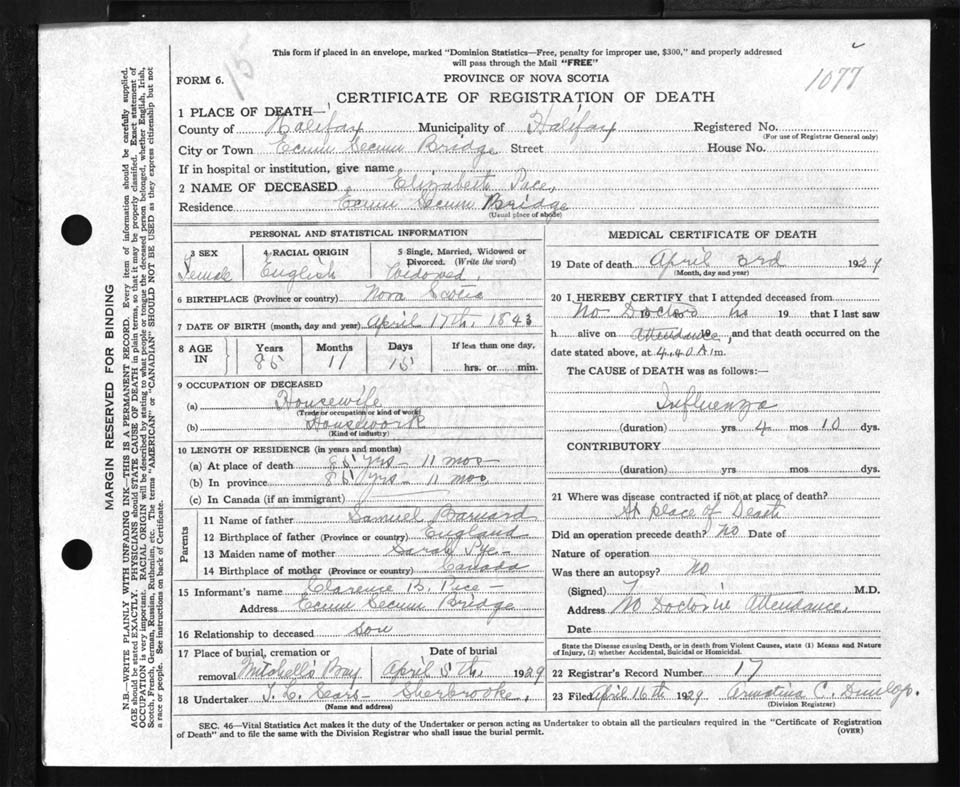 This form if placed in an envelope, marked "Dominion Statistics—Free, penalty for improper use, $300," and properly addressed
will pass through the Mail "FREE"
15
1077
FORM 6.
PROVINCE OF NOVA SCOTIA
CERTIFICATE OF REGISTRATION OF DEATH
1 PLACE OF DEATH—
County of Halifax Municipality of Halifax Registered No.
(For use of Registrar General only)
City or Town Ecum Secum Bridge Street House No.
If in hospital or institution, give name
2 NAME OF DECEASED Elizabeth Pace,
Residence Ecum Secum Bridge
(Usual place of abode)
PERSONAL AND STATISTICAL INFORMATION
3 SEX 4 RACIAL ORIGIN 5 Single, Married, Widowed or
Divorced. (Write the word)
Female English Widowed.
6 BIRTHPLACE (Province or country) Nova Scotia
7 DATE OF BIRTH (month, day and year) April 17th, 1843
8 AGE IN Years Months Days If less than one day,
85 11 15 hrs. or min.
9 OCCUPATION OF DECEASED
(a) Housewife
(Trade or occupation or kind of work)
(b) Housework
(Kind of industry)
10 LENGTH OF RESIDENCE (in years and months)
(a) At place of death 85 yrs – 11 mos –
(b) In province 85 yrs – 11 mos
(c) In Canada (if an immigrant)
Parents
11 Name of father Samuel Barnard
12 Birthplace of father (Province or country) England
13 Maiden name of mother Sarah Pye –
14 Birthplace of mother (Province or country) Canada
15 Informant's name Clarence B. Pace –
Address Ecum Secum Bridge
16 Relationship to deceased son
17 Place of burial, cremation or Date of burial
removal Mitchell's Bay April 5th, 1929
18 Undertaker J. E. Sears – Sherbrooke,
(Name and address)
MEDICAL CERTIFICATE OF DEATH
19 Date of death April 3rd 1929
(Month, day and year)
20 I HEREBY CERTIFY that I attended deceased from
No Doctor in 19 that I last saw
h alive on Attendance 19 , and that death occurred on the
date stated above, at 4.40 A.m.
The CAUSE of DEATH was as follows:—
Influenza
(duration) yrs 4 mos 10 dys.
CONTRIBUTORY
(duration) yrs. mos. dys.
21 Where was disease contracted if not at place of death?
At place of Death
Did an operation precede death? No Date of
Nature of operation
Was there an autopsy? No
(Signed) M.D.
Address No Doctor in Attendance,
Date
State the Disease causing Death, or in death from Violent Causes, state (1) Means and Nature
of Injury, (2) whether Accidental, Suicidal or Homicidal.
22 Registrar's Record Number 17
23 Filed April 16th 1929 Armatina C. Dunlop.
(Division Registrar)
SEC. 46—Vital Statistics Act makes it the duty of the Undertaker or person acting as Undertaker to obtain all the particulars required in the "Certificate of Registration
of Death" and to file the same with the Division Registrar who shall issue the burial permit.
(OVER)
MARGIN RESERVED FOR BINDING
N.B.—WRITE PLAINLY WITH UNFADING INK—THIS IS A PERMANENT RECORD. Every item of information should be carefully supplied.
AGE should be stated EXACTLY. PHYSICIANS should STATE CAUSE OF DEATH in plain terms, so that it may be properly classified. Exact statement of
OCCUPATION is very important. RACIAL ORIGIN will be described by stating to what people or tongue the deceased person belonged, whether English, Irish,
Scotch, French, German, Russian, Ruthenian, etc. The terms "AMERICAN" or "CANADIAN" SHOULD NOT BE USED as they express citizenship but not
a race or people. See instructions on back of Certificate.